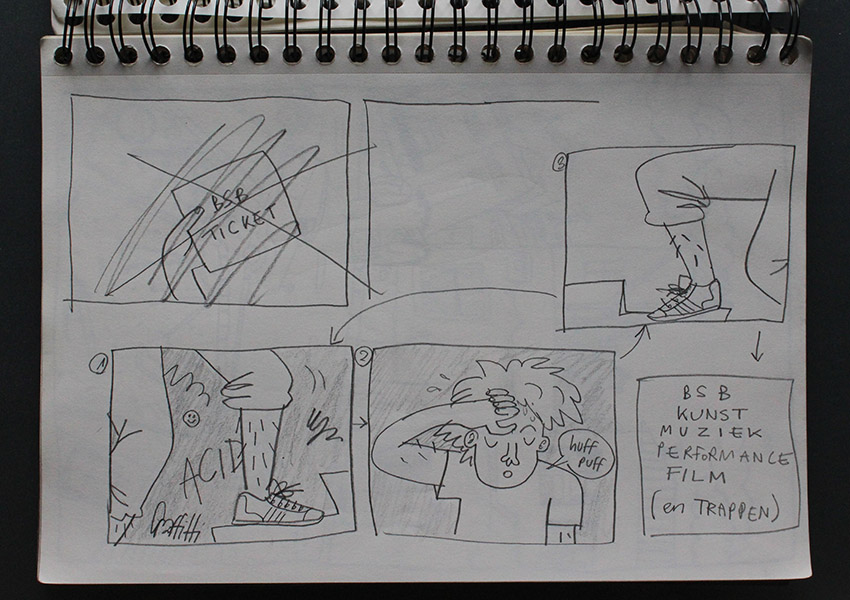 BSB
TICKET
3
1
ACID
Graffitti
2
huff
puff
BSB
KUNST
MUZIEK
PERFORMANCE
FILM
(en TRAPPEN)